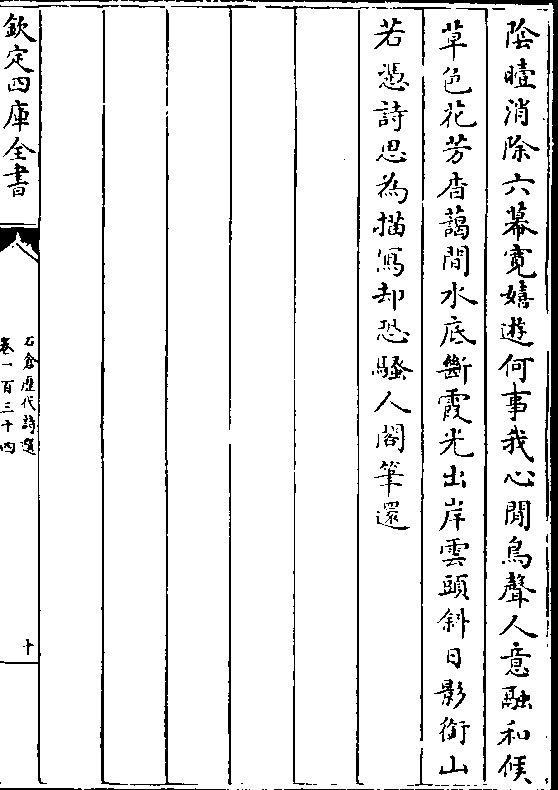 陰曀消除六幕寛嬉遊何事我心閒鳥聲人意融和候
草色花芳杳藹間水底斷霞光出岸雲頭斜日影銜山
若憑詩思為描寫却恐騷人閣筆還
欽定四庫全書
石倉歷代詩選
卷一百三十四
十